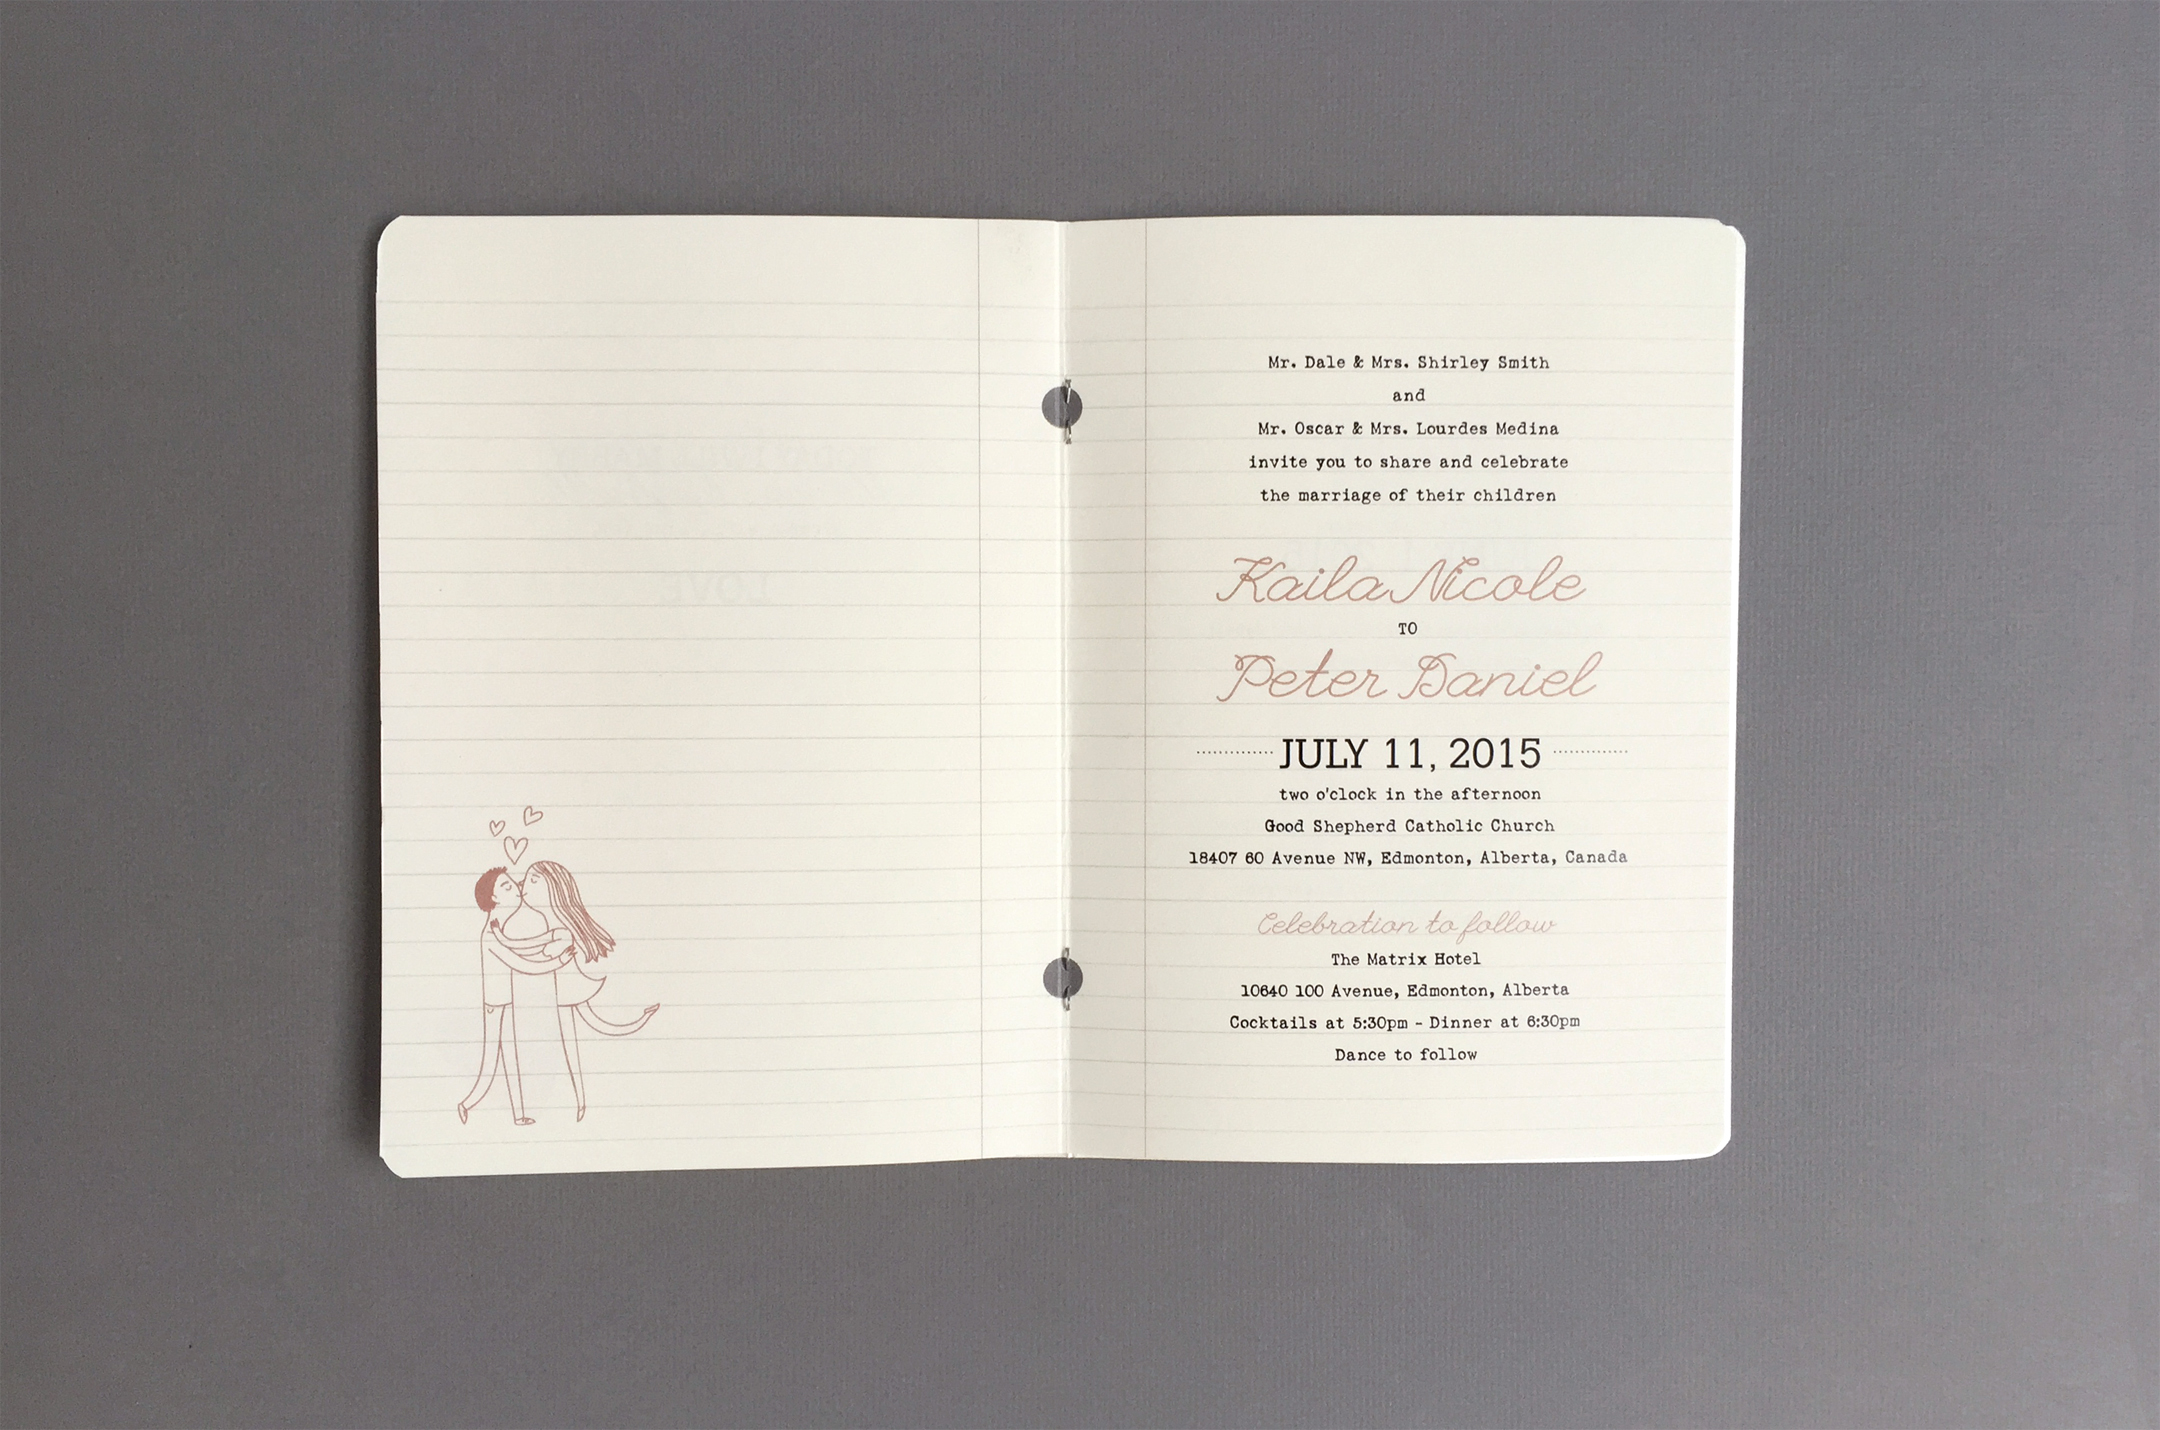 Mr. Dale & Mrs. Shirley Smith
and
Mr. Oscar & Mrs. Lourdes Medina
invite you to share and celebrate
the marriage of their children
Kaila Nicole
TO
Peter Daniel
JULY 11, 2015
two o'clock in the afternoon
Good Shepherd Catholic Church
18407 60 Avenue NW, Edmonton, Alberta, Canada
Celebration to follow
The Matrix Hotel
10640 100 Avenue, Edmonton, Alberta
Cocktails at 5:30pm - Dinner at 6:30pm
Dance to follow